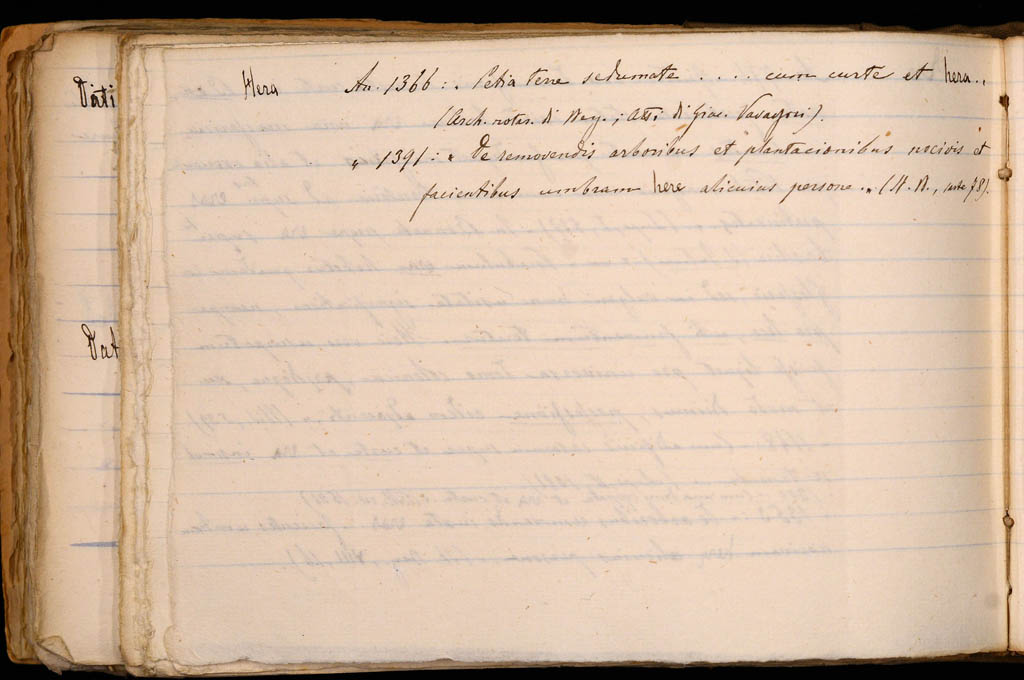 Vati
Hera An. 1366: „ Petia terre sedumate .... cum curte et hera „
(Arch. notar. di Berg.; Atti di Giac.
„ 1391: „ De removendis arboribus et plantacionibus nocivis et
facientibus umbram here alicuius persone „ (St. B., carte 78).
Vat